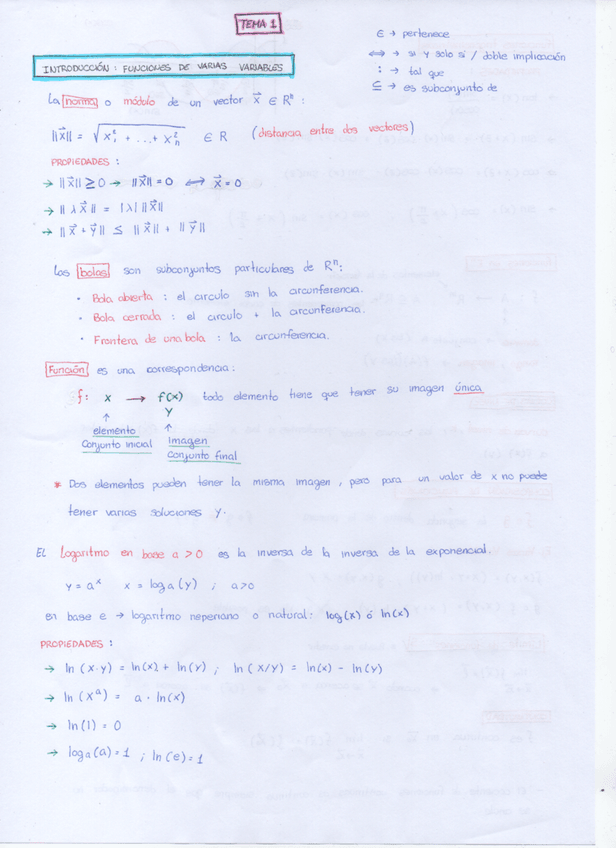 TEMA 1
∈ → pertenece
⟺ → si y solo si / doble implicación
: → tal que
⊆ → es subconjunto de
INTRODUCCIÓN: FUNCIONES DE VARIAS VARIABLES
La norma o módulo de un vector x⃗ ∈ Rⁿ:
||x⃗|| = √(x₁² + ... + xₙ²) ∈ R (distancia entre dos vectores)
PROPIEDADES:
→ ||x⃗|| ≥ 0 → ||x⃗|| = 0 ⟺ x⃗ = 0
→ ||λx⃗|| = |λ| ||x⃗||
→ ||x⃗ + y⃗|| ≤ ||x⃗|| + ||y⃗||
Las bolas son subconjuntos particulares de Rⁿ:
· Bola abierta: el circulo sin la circunferencia.
· Bola cerrada: el circulo + la circunferencia.
· Frontera de una bola: la circunferencia.
Función es una correspondencia:
f: x → f(x) todo elemento tiene que tener su imagen única
↑ y
elemento ↑
Conjunto inicial Imagen
Conjunto final
* Dos elementos pueden tener la misma imagen, pero para un valor de x no puede
tener varias soluciones y.
El Logaritmo en base a > 0 es la inversa de la inversa de la exponencial.
y = aˣ x = logₐ(y) ; a>0
en base e → logaritmo neperiano o natural: log(x) ó ln(x)
PROPIEDADES:
→ ln(x·y) = ln(x) + ln(y) ; ln(x/y) = ln(x) - ln(y)
→ ln(xᵃ) = a · ln(x)
→ ln(1) = 0
→ logₐ(a) = 1 ; ln(e) = 1